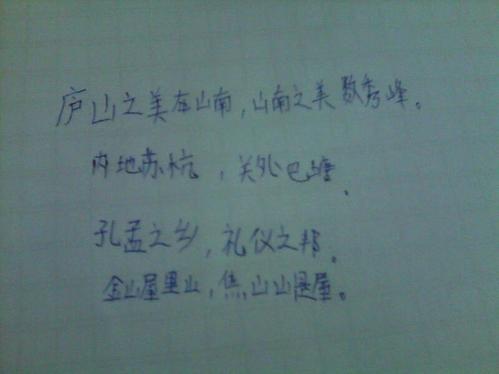 庐山之美在山南，山南之美数秀峰。
内地苏杭，关外巴塘、
孔孟之乡，礼仪之邦。
金山屋里山，焦山山里屋。